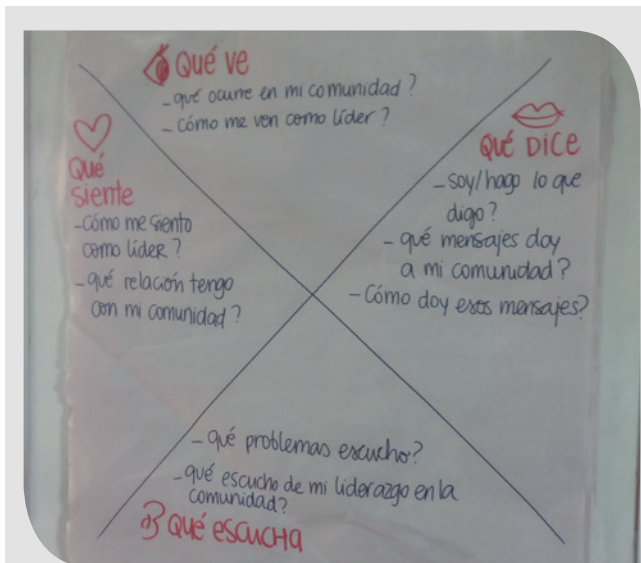 Qué ve
- qué ocurre en mi comunidad?
- cómo me ven como líder?
Qué
siente
- Cómo me siento
como líder?
- qué relación tengo
con mi comunidad?
Qué DiCE
- soy/hago lo que
digo?
- qué mensajes doy
a mi comunidad?
- Cómo doy esos mensajes?
- qué problemas escucho?
- qué escucho de mi liderazgo en la
comunidad?
Qué ESCUCHA